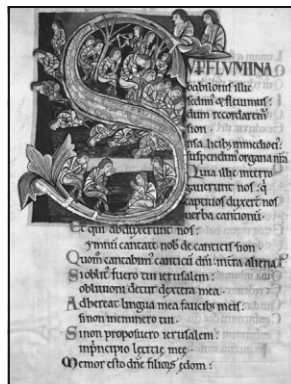 SUPER FLUMINA
babilonis illic
sedimus & flevimus:
dum recordaremur
sion.
In salicib; in medio ei:
suspendimus organa nra
Quia illic interro
gaverunt nos: q
captivos duxer nos
verba cantionu
Et qui abduxerunt nos:
ymnu cantate nob de canticis sion.
Quom cantabim canticu dni: in tra aliena
Si oblit fuero tui ierusalem:
oblivioni detur dextera mea.
Adhereat lingua mea faucib; meis:
si non meminero tui.
Si non proposuero ierusalem:
in principio leticie mee.
Memor esto dne filioru edom: